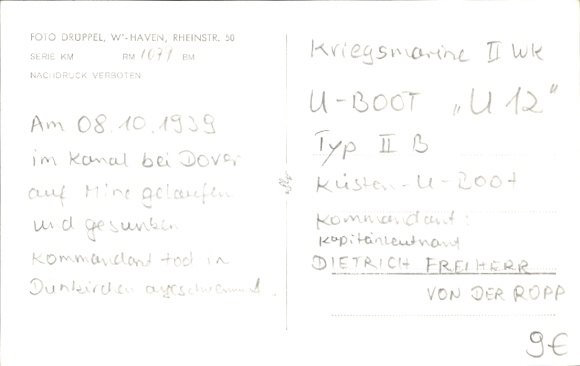 FOTO DRÜPPEL, W'-HAVEN, RHEINSTR. 50
SERIE KM RM 1671 BM
NACHDRUCK VERBOTEN
Am 08.10.1939
im Kanal bei Dover
auf Mine gelaufen
und gesunken
Kommandant tod in
Dünkirchen angeschwemmt.
Kriegsmarine II WK
U-BOOT „U 12"
Typ II B
Küsten-U-Boot
Kommandant:
Kapitänleutnant
DIETRICH FREIHERR
VON DER ROPP
9€